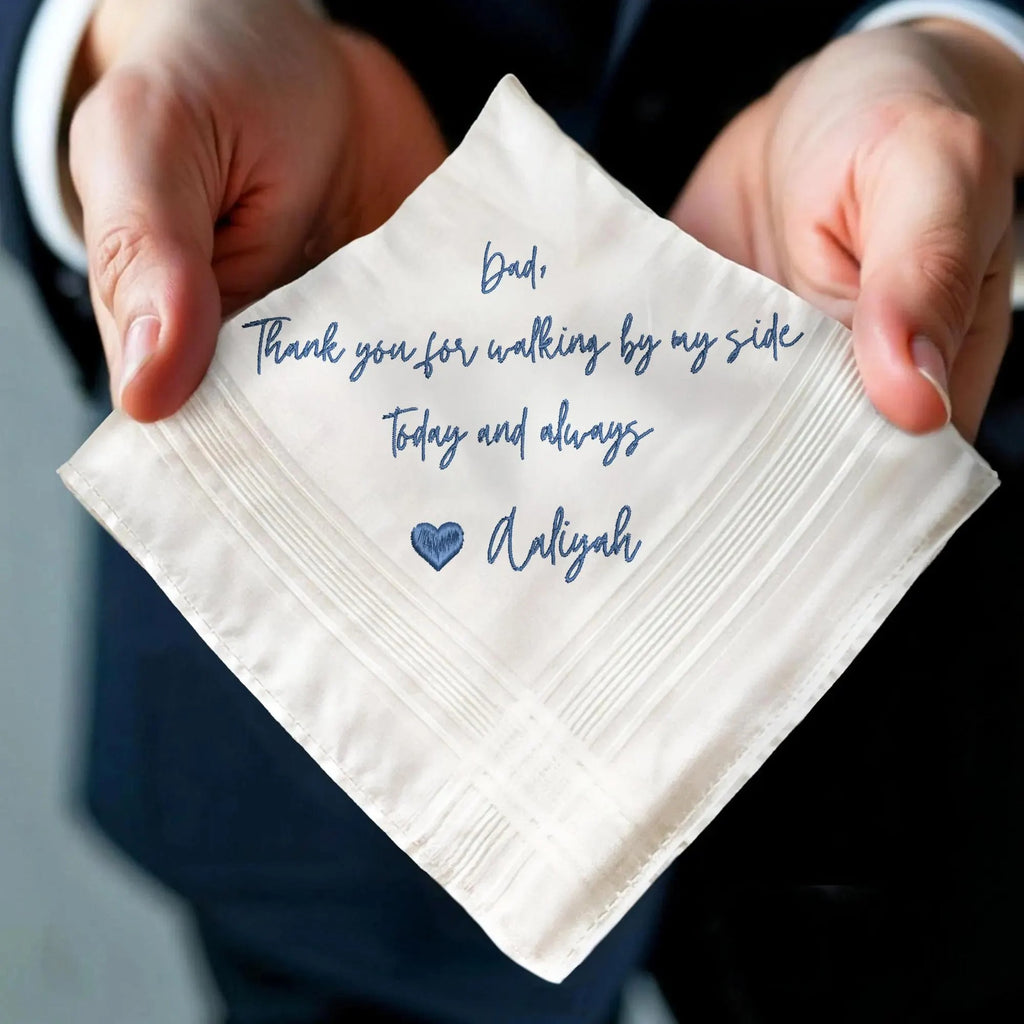 Dad,
Thank you for walking by my side
Today and always
Aaliyah